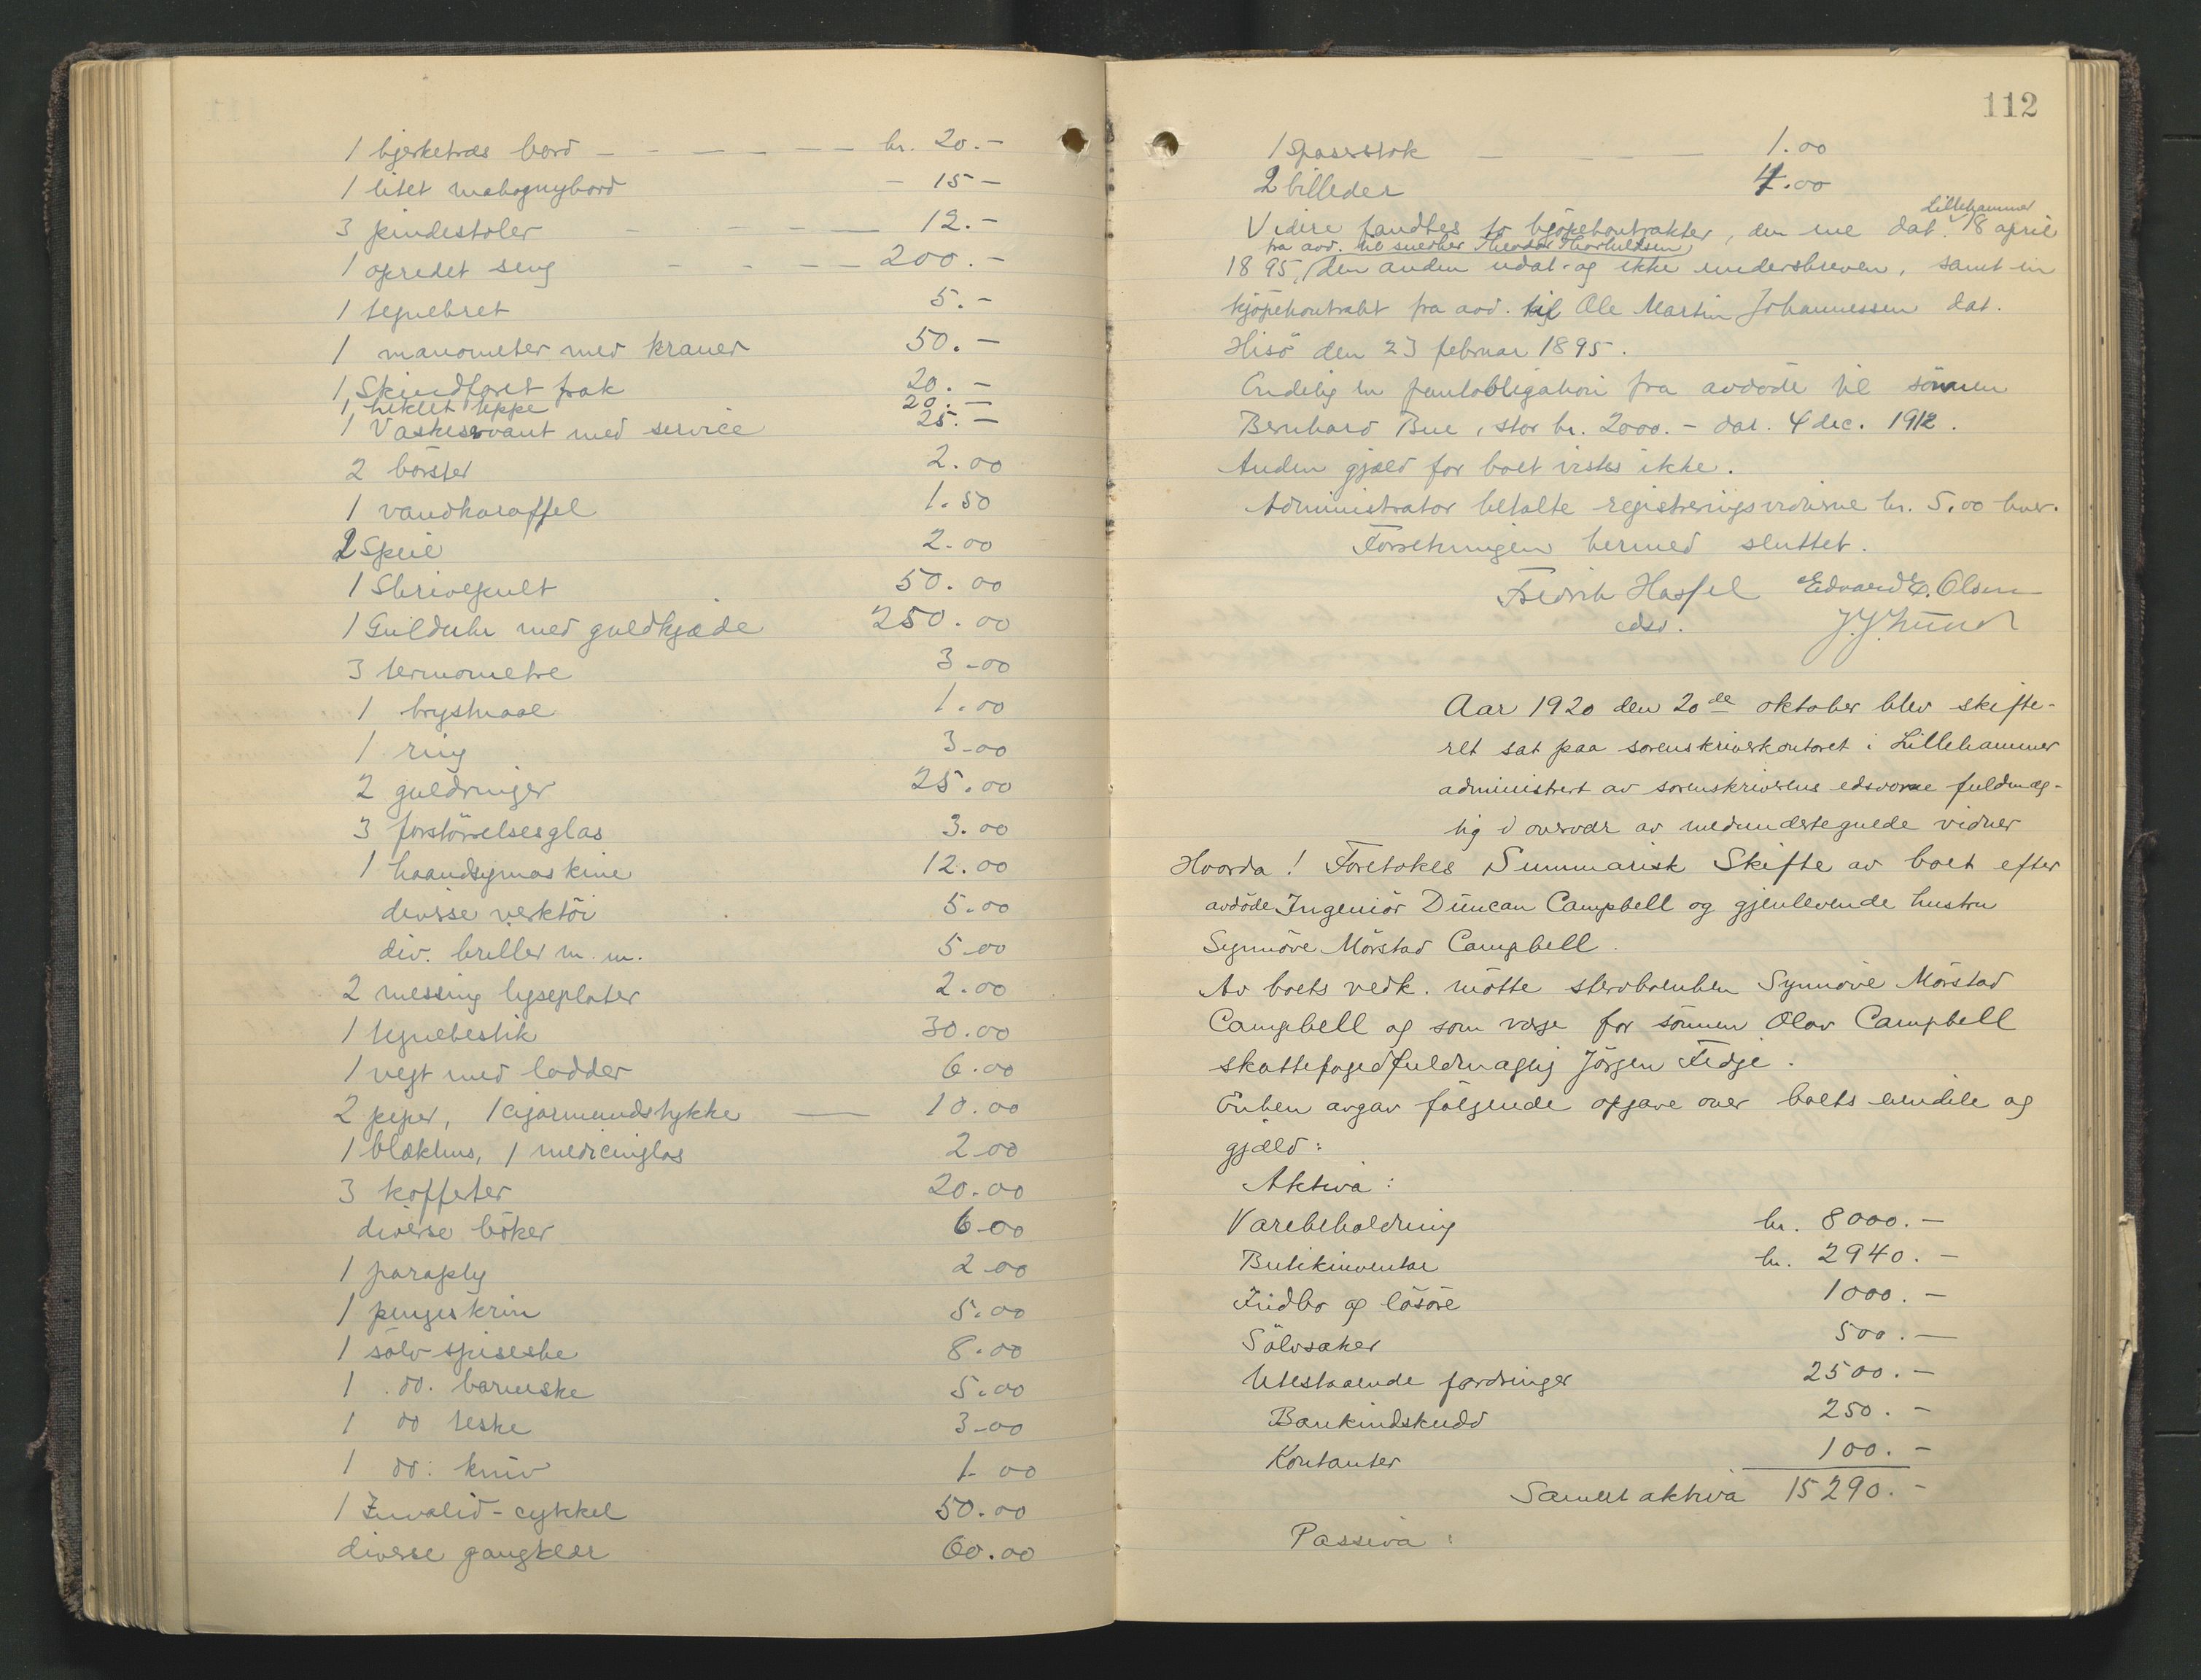 1 bjerketræs bord – – – – – – kr. 20.-
1 litet mahognybord – 15 –
3 pindestoler – – – – – 12.-
1 opredet seng – – – – 200.-
1 tegnebret 5.-
1 manometer med kraner 50.-
1 Skindforet frak 20.-
1 heklet teppe 20.-
1 Vaskeservant med service 25.-
2 börster 2.00
1 vandkaraffel 1.50
2 Speil 2.00
1 Skrivepult 50.00
1 Gulduhr med guldkjæde 250.00
3 termometre 3-00
1 brystnaal 1.00
1 ring 3-00
2 guldringer 25.00
3 forstörrelsesglas 3.00
1 haandsymaskine 12.00
diverse verktöi 5.00
div. briller m.m. 5-00
2 messing lyseplater 2.00
1 tegnebestik 30.00
1 vegt med lodder 6.00
2 piper, 1 cigarmundstykke — 10.00
1 blækhus, 1 medicinglas 2-00
3 kofferter 20.00
diverse böker 6-00
1 paraply 2-00
1 pengeskrin 5.00
1 sölv spiseske 8.00
1 do. barneske 5.00
1 do teske 3-00
1 do: kniv 1-00
1 Invalid-cykkel 50.00
diverse gangklær 60.00
112
1 Spaserstok – – – – 1.00
2 billeder 4.00
Lillehammer
Videre fandtes to kjöpekontrakter, den ene dat. 18 april
fra avd. til snedker Theodor Thorvaldsen
1895, den anden udat. og ikke underskreven, samt en
kjöpekontrakt fra avd. til Ole Martin Johannessen dat.
Hisö den 23 februar 1895.
Endelig en pantobligation fra avdöde til sönnen
Bernhard Bue, stor kr. 2000.- dat. 4 dec. 1912.
Anden gjæld for boet vistes ikke.
Administrator betalte registreringsvidnerne kr. 5.00 hver.
Forretningen hermed sluttet.
Fredrik Hassel Edvard E. Olsen
edsv.
Aar 1920 den 20de oktober blev skifte-
ret sat paa sorenskriverkontoret i Lillehammer
administrert av sorenskriverens edsvorne fuldmæg-
tig i overvær av medundertegnede vidner
Hvorda! Foretokes Summarisk Skifte av boet efter
avdöde Ingeniör Duncan Campbell og gjenlevende hustru
Synnöve Mörstad Campbell.
Av boets vedk. mötte stervboenken Synnöve Mörstad
Campbell og som verge for sönnen Olav Campbell
skattefogedfuldmægtig Jörgen Fidje.
Enken avgav fölgende opgave over boets eiendele og
gjæld:
Aktiva:
Varebeholdning kr. 8000.-
Butikinventar kr. 2940.-
Indbo og lösöre 1000.-
Sölvsaker 500.-
Utestaaende fordringer 2500.-
Bankindskudd 250.-
Kontanter 100.-
Samlet aktiva 15290.-
Passiva: